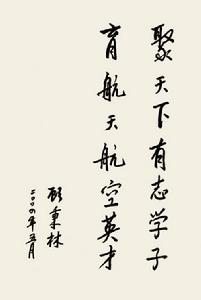 聚天下有志学子
育航天航空英才
顾秉林
二〇〇六年五月